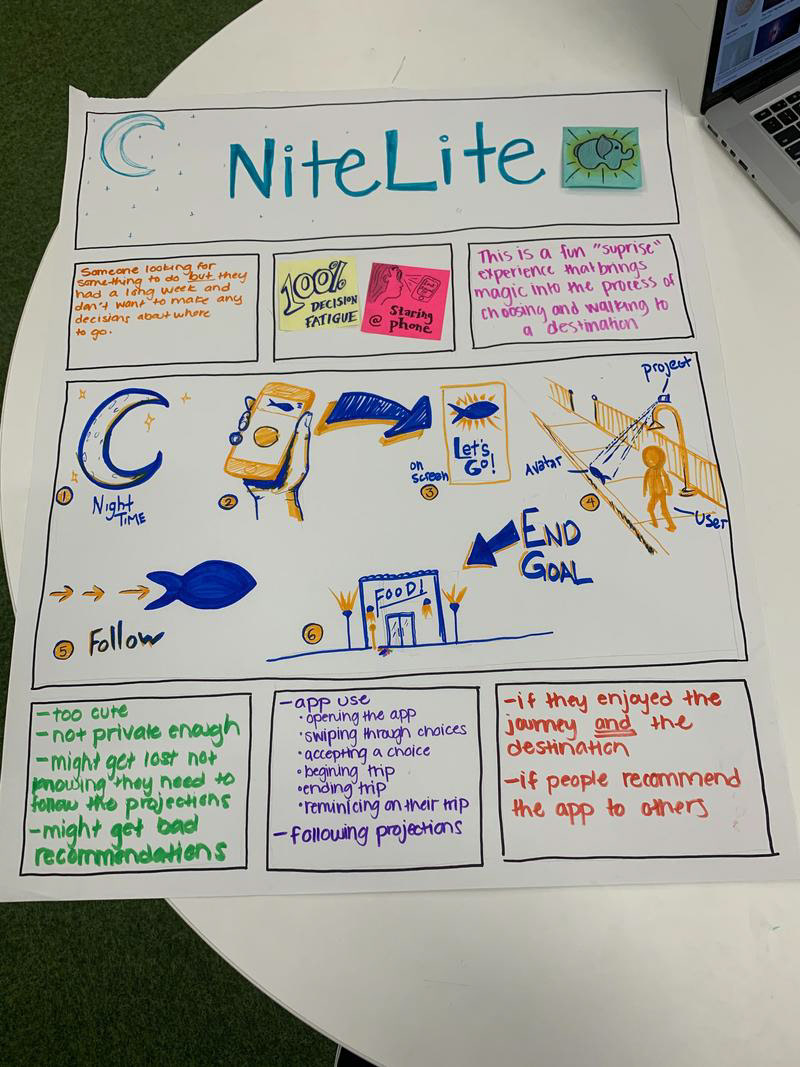 NiteLite
Someone looking for
something to do but they
had a long week and
don't want to make any
decisions about where
to go.
100%
DECISION
FATIGUE
Staring
@ phone
This is a fun "suprise"
experience that brings
magic into the process of
choosing and walking to
a destination
1
Night
TIME
2
on
screen
3
Let's
Go!
project
Avatar
4
User
5
Follow
END
GOAL
6
FOOD!
-too cute
-not private enough
-might get lost not
knowing they need to
follow the projections
-might get bad
recommendations
-app use
•opening the app
•swiping through choices
•accepting a choice
•begining trip
•ending trip
•reminicing on their trip
-following projections
-if they enjoyed the
journey and the
destination
-if people recommend
the app to others